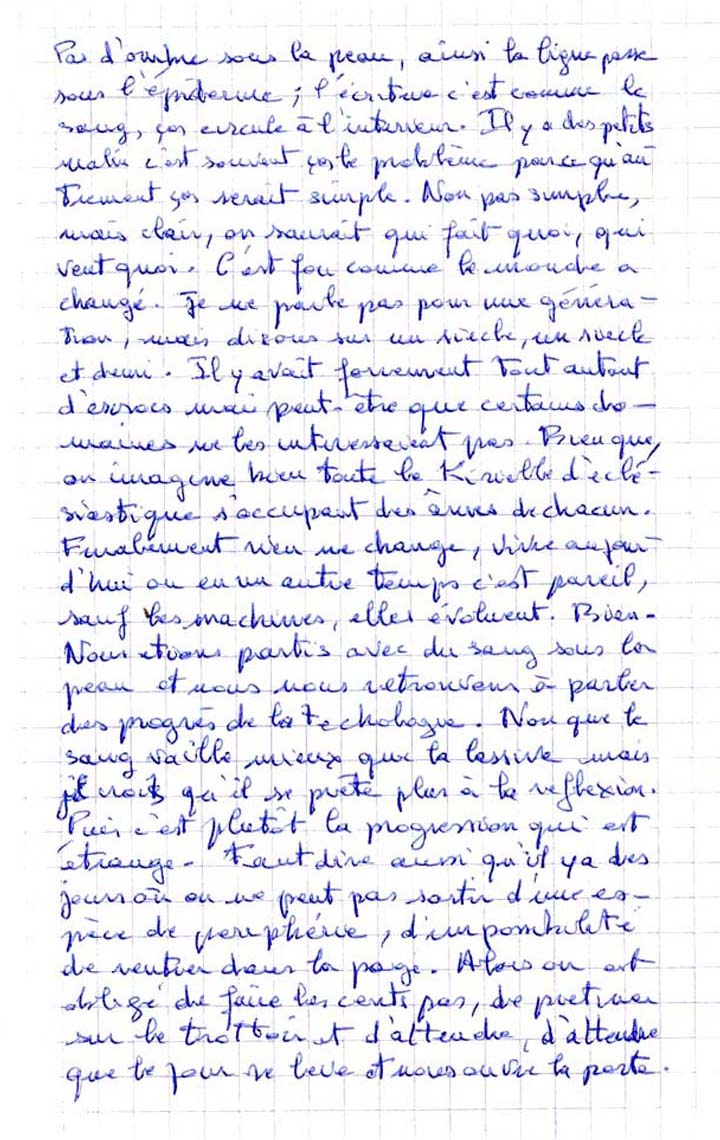 Pas d'ombre sous la peau, ainsi la ligne passe
sous l'épiderme ; l'écriture c'est comme le
sang, ças circule à l'intérieur. Il y a des petits
malin c'est souvent ças le problème parce qu'au
trement ças serait simple. Non pas simple,
mais clair, on saurait qui fait quoi, qui
veut quoi. C'est fou comme le monde a
changé. Je ne parle pas pour une généra-
tion, mais disons sur un siècle, un siècle
et demi. Il y avait forcement tout autant
d'escrocs mai peut-être que certains do-
maines ne les interessaient pas. Bien que,
on imagine bien toute la Kirielle d'eclé-
siastique s'occupant des âmes de chacun.
Finalement rien ne change, vivre aujour-
d'hui ou en un autre temps c'est pareil,
sauf les machines, elles évoluent. Bien.
Nous etions partis avec du sang sous la
peau et nous nous retrouvons à parler
des progrès de la techologie. Non que le
sang vaille mieux que la lessive mais
je crois qu'il se prête plus à la reflexion.
Puis c'est plutôt la progression qui est
étrange. Faut dire aussi qu'il y a des
jours où on ne peut pas sortir d'une es-
pèce de peripherie, d'impossibilité
de rentrer dans la page. Alors on est
obligé de faire les cents pas, de pietiner
sur le trottoir et d'attendre, d'attendre
que le jour se leve et nous ouvre la porte.